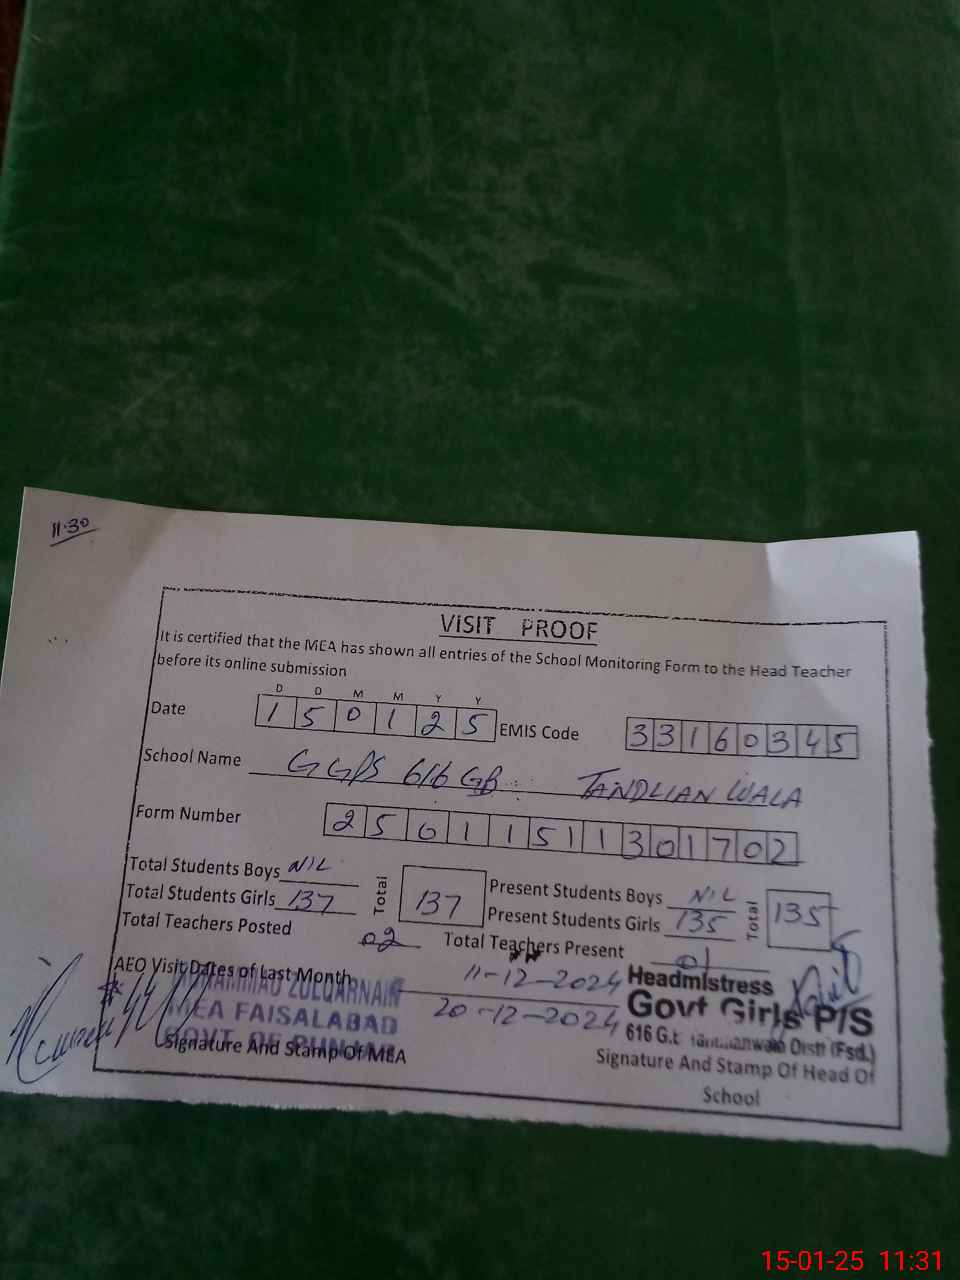 11:30
VISIT PROOF
It is certified that the MEA has shown all entries of the School Monitoring Form to the Head Teacher
before its online submission
D D M M Y Y
Date 1 5 0 1 2 5 EMIS Code 3 3 1 6 0 3 4 5
School Name GGPS 616 GB TANDLIAN WALA
Form Number 2 5 0 1 1 5 1 1 3 0 1 7 0 2
Total Students Boys NIL Present Students Boys NIL
Total Students Girls 137 Total 137 Present Students Girls 135 Total 135
Total Teachers Posted 02 Total Teachers Present 01
AEO Visit Dates of Last Month 11-12-2024
20-12-2024
ZULQARNAIN
MEA FAISALABAD
GOVT OF PUNJAB
Signature And Stamp Of MEA
Headmistress
Govt Girls P/S
616 G.B Distt (Fsd.)
Signature And Stamp Of Head Of
School
15-01-25 11:31